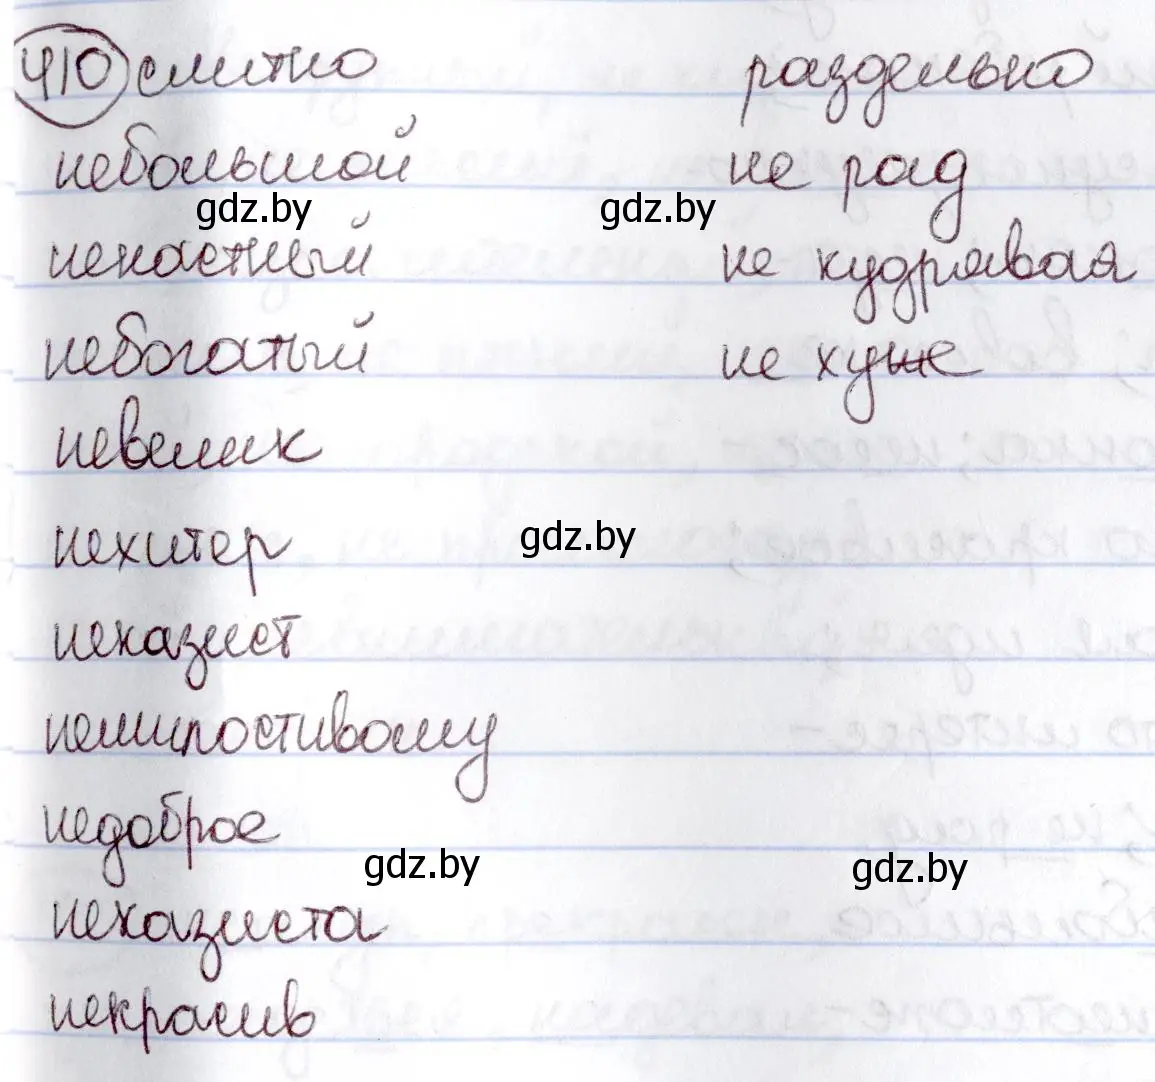 410 слитно раздельно
небольшой не рад
gdz.by gdz.by
ненастный не кудрявая
небогатый не хуже
невелик
нехитер gdz.by
неказист
немилостивому
недоброе
gdz.by gdz.by
неказиста
некрасив